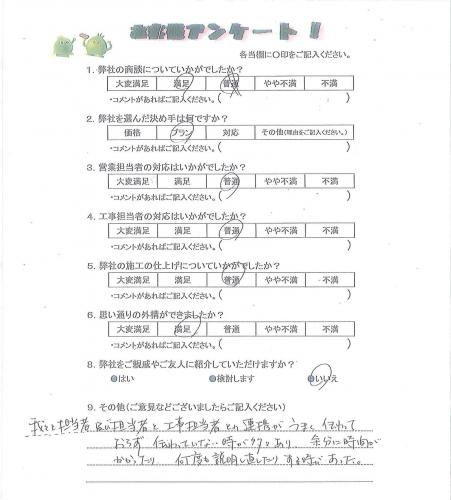 お客様アンケート！
各当欄に○印をご記入ください。
1. 弊社の商談についていかがでしたか？
大変満足 満足 普通 やや不満 不満
・コメントがあればご記入ください。( )
2. 弊社を選んだ決め手は何ですか？
価格 プラン 対応 その他(理由をご記入ください。)
・コメントがあればご記入ください。( )
3. 営業担当者の対応はいかがでしたか？
大変満足 満足 普通 やや不満 不満
・コメントがあればご記入ください。( )
4. 工事担当者の対応はいかがでしたか？
大変満足 満足 普通 やや不満 不満
・コメントがあればご記入ください。( )
5. 弊社の施工の仕上げについていかがでしたか？
大変満足 満足 普通 やや不満 不満
・コメントがあればご記入ください。( )
6. 思い通りの外構ができましたか？
大変満足 満足 普通 やや不満 不満
8. 弊社をご親戚やご友人に紹介していただけますか？
はい 検討します いいえ
9. その他(ご意見などございましたらご記入ください)
担当者 担当者と工事担当者との連携がうまく伝わって
おらず 伝わっていない時が多々あり 余分に時間が
かかったり 何度も説明し直したりする時があった。